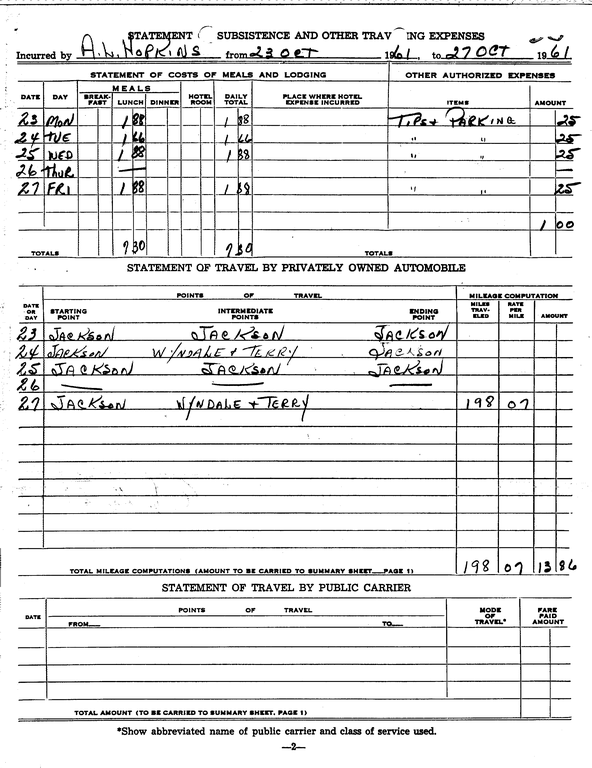 STATEMENT SUBSISTENCE AND OTHER TRAV ING EXPENSES
Incurred by A.L. HOPKINS from 23 OCT 1961, to 27 OCT 1961
STATEMENT OF COSTS OF MEALS AND LODGING OTHER AUTHORIZED EXPENSES
DATE DAY MEALS BREAK-FAST LUNCH DINNER HOTEL ROOM DAILY TOTAL PLACE WHERE HOTEL EXPENSE INCURRED ITEMS AMOUNT
23 MON 1 88 1 88 TIPS & PARKING 25
24 TUE 1 66 1 66 " " 25
25 WED 1 88 1 88 " " 25
26 THUR — —
27 FRI 1 88 1 88 " " 25
1 00
TOTALS 7 30 7 30 TOTALS
STATEMENT OF TRAVEL BY PRIVATELY OWNED AUTOMOBILE
POINTS OF TRAVEL MILEAGE COMPUTATION
DATE OR DAY STARTING POINT INTERMEDIATE POINTS ENDING POINT MILES TRAV-ELED RATE PER MILE AMOUNT
23 JACKSON JACKSON JACKSON
24 JACKSON WYNDALE & TERRY JACKSON
25 JACKSON JACKSON JACKSON
26 — — —
27 JACKSON WYNDALE & TERRY 198 07
TOTAL MILEAGE COMPUTATIONS (AMOUNT TO BE CARRIED TO SUMMARY SHEET—PAGE 1) 198 07 13 86
STATEMENT OF TRAVEL BY PUBLIC CARRIER
DATE POINTS OF TRAVEL MODE OF TRAVEL* FARE PAID AMOUNT
FROM— TO—
TOTAL AMOUNT (TO BE CARRIED TO SUMMARY SHEET, PAGE 1)
*Show abbreviated name of public carrier and class of service used.
—2—